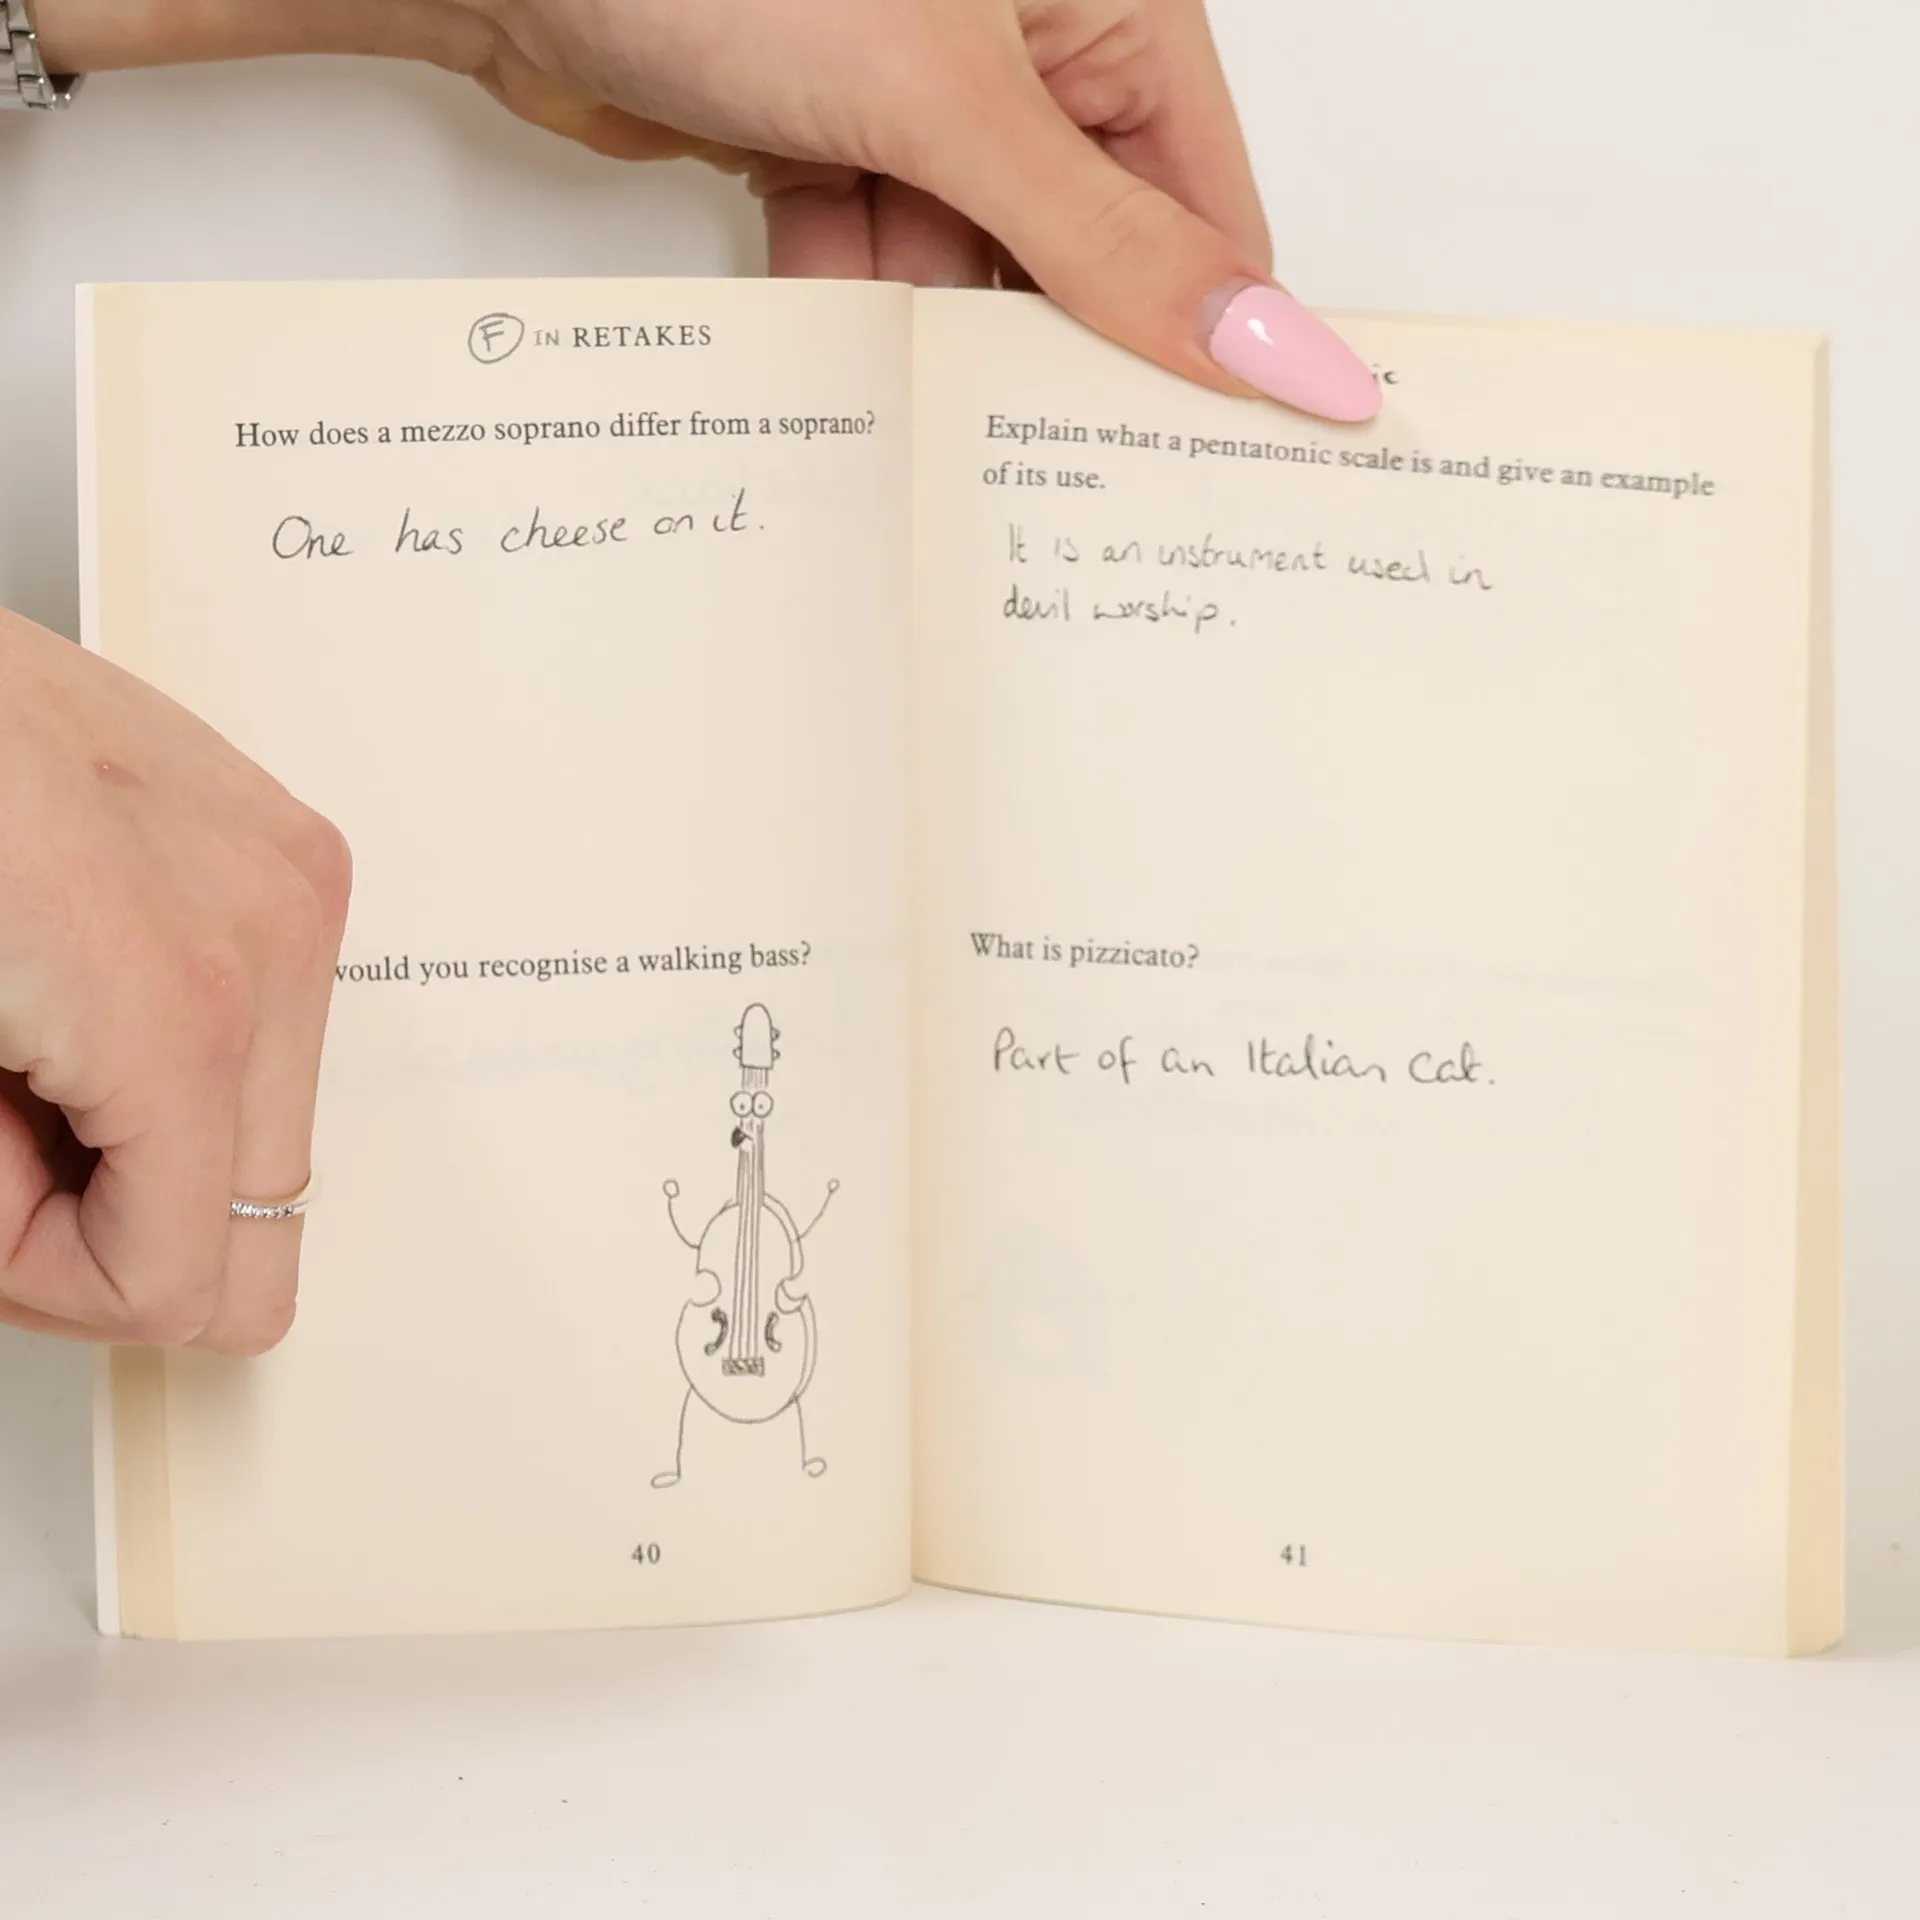 F IN RETAKES
How does a mezzo soprano differ from a soprano?
One has cheese on it.
would you recognise a walking bass?
40
Explain what a pentatonic scale is and give an example
of its use.
It is an instrument used in
devil worship.
What is pizzicato?
Part of an Italian cat.
41